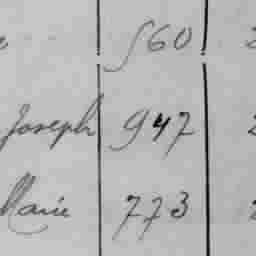 560
Joseph 947
Marie 773